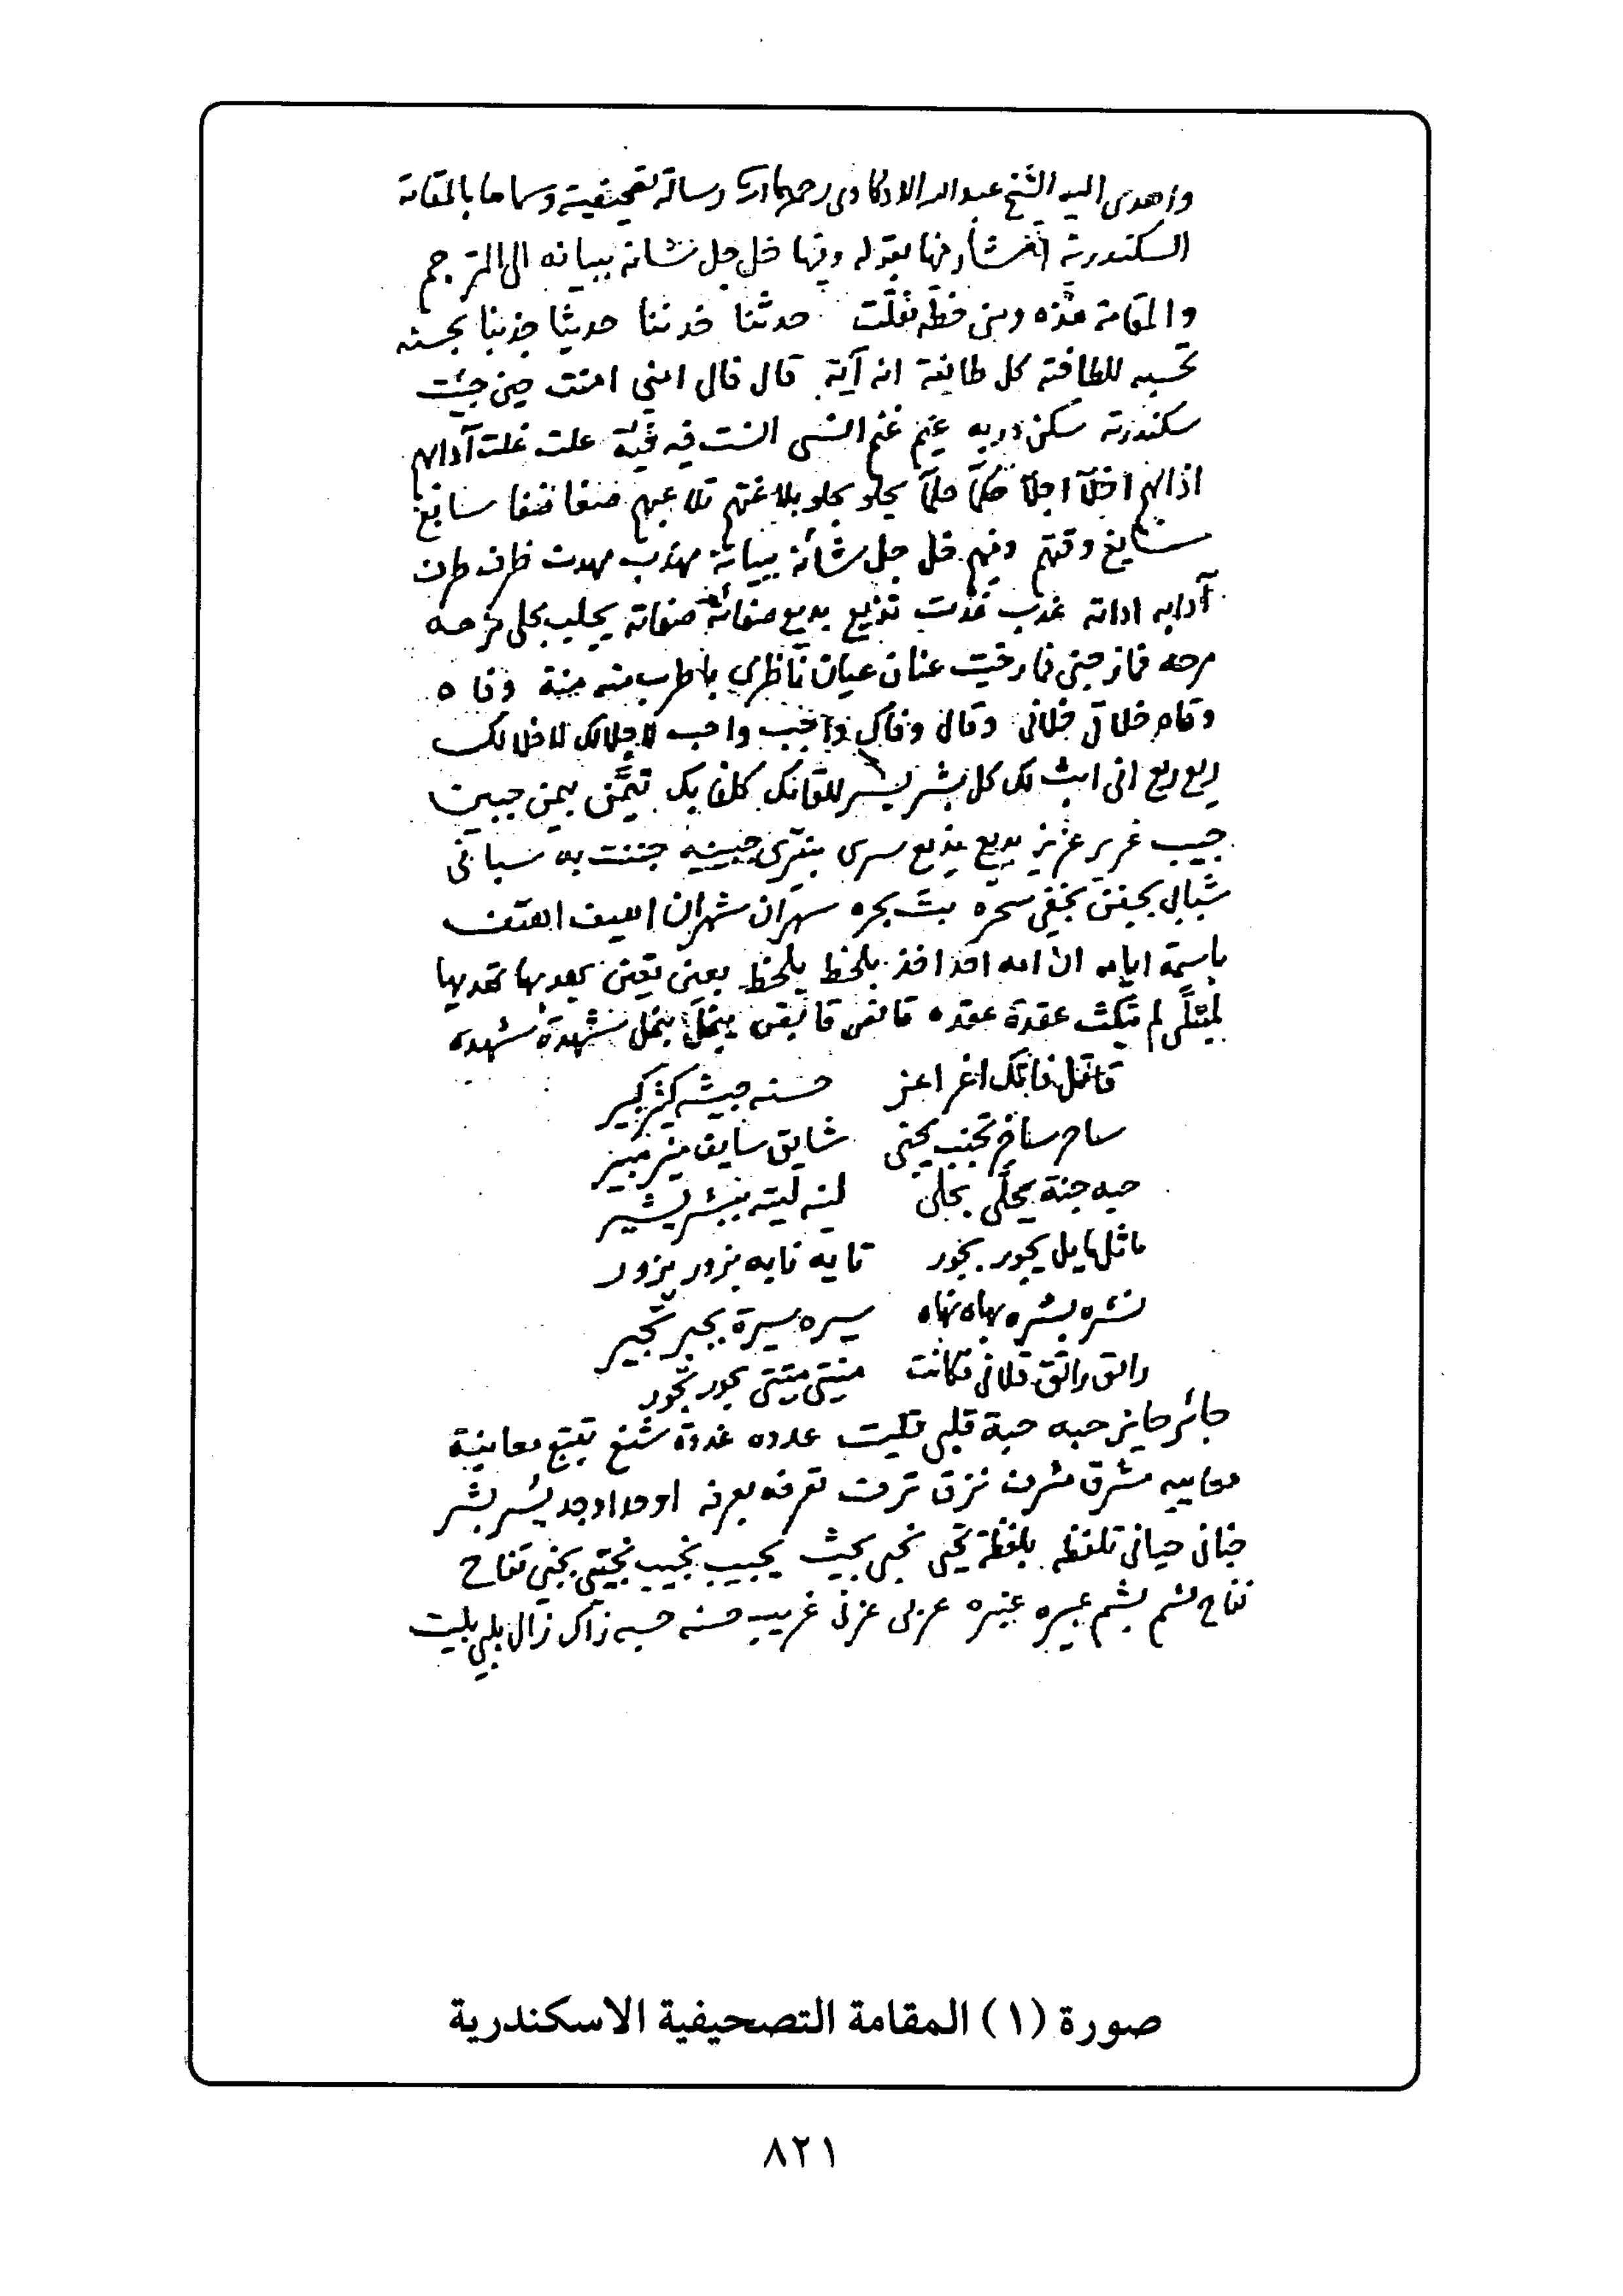 واهدى اليه الشيخ عبد الله الادكاوى رحمهما الله رسالة تصحيفية وسماها بالمقامة
السكندرية اشار فيها بقوله ومنها خل جل شانه ببيانه الى المترجم
والمقامة هذه ومن خطه نقلت حدثنا خدننا حديثا جذبنا بحسنه
تحسبه للطافته كل طائفة انه آية قال قال امنى امنت حين جيت
سكندرية سكن دربه غنم انست فيه فية علت غلت آدابهم
اذانهم اخلآ اجلآ حكمآ حلمآ يحلو بجلو بلاغتهم تلاعبهم صفا ضفا سابغ
سايغ وقتهم ومنهم خل جل شانه ببيانه مهذب مهدت ظرف طرف
آدابه اداته عذب غدت توزيع بديع صفاته يجلب بحلى مزحه
مرحه فمازحنى فارخيت عنان عيان ناظرى باطرب منه منة وفاه
وقام خلاق خلانى وقال وفاك واجب واحب لاجلالك لاخلالك
ربع ربع انى ابث لك كل بشر يسر للقائك كلفا بك تيمن بيمن جبين
حبيب غرير عزيز بديع سرى جبينه جننت به سبانى
شبابى بجفن يخفى سحره بت بحره سهران شهران اهيف اهتف
باسمه ايامه ان امه احد اخذ بلحظ يلحظ بعين تعين بعدبها تعديها
لمبتلى لم تنكث عقدة عقده فائق يبخل بنحل شهدة شهده
قاتل فاتك اغر اعز حسنه جيشه كثير كبير
ساحر ساخر تجنب يجنى شايق سايق منير مبير
حبه جنة يحلى بجلى لينه ليته يبشر بشير
مائل مايل يجور بجور تايه نابه يزور بزور
نشره بشره بهاه نهاه سيره سيرة بحبر تجير
رائق رائق فلانى فكانت منيتى منيتى بحور تجور
جائر حايز حبه حبة قلبى قلبت عدده غدوة شنع تبتع معاينة
معايبه مشرق مشرف نزق ترف تعرفه بعرفه اوحد اوجد يسر بشر
جنانى حيانى تلفظه بلفظة تحيى نحبى بحيث يجيب نجيب نجتبى بجنى تفاح
نفاح نشم بشم عبيره عنبره عربى عزنى غريب حسنه حسبه زاك زال بلبى بليت
صورة (١) المقامة التصحيفية الاسكندرية
٨٢١